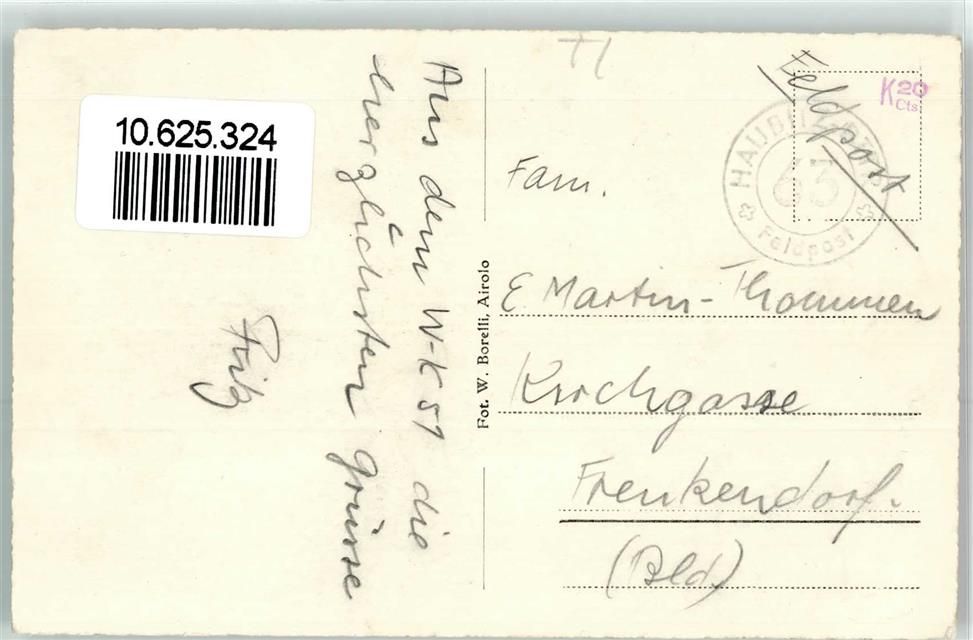 10.625.324
Aus dem W-K 51 die
herzlichsten Grüsse
Fritz
Fot. W. Borelli, Airolo
TI
Feldpost
K20
Cts
63
Feldpost
Fam.
E Martin-Thommen
Kirchgasse
Frenkendorf.
(Bld)